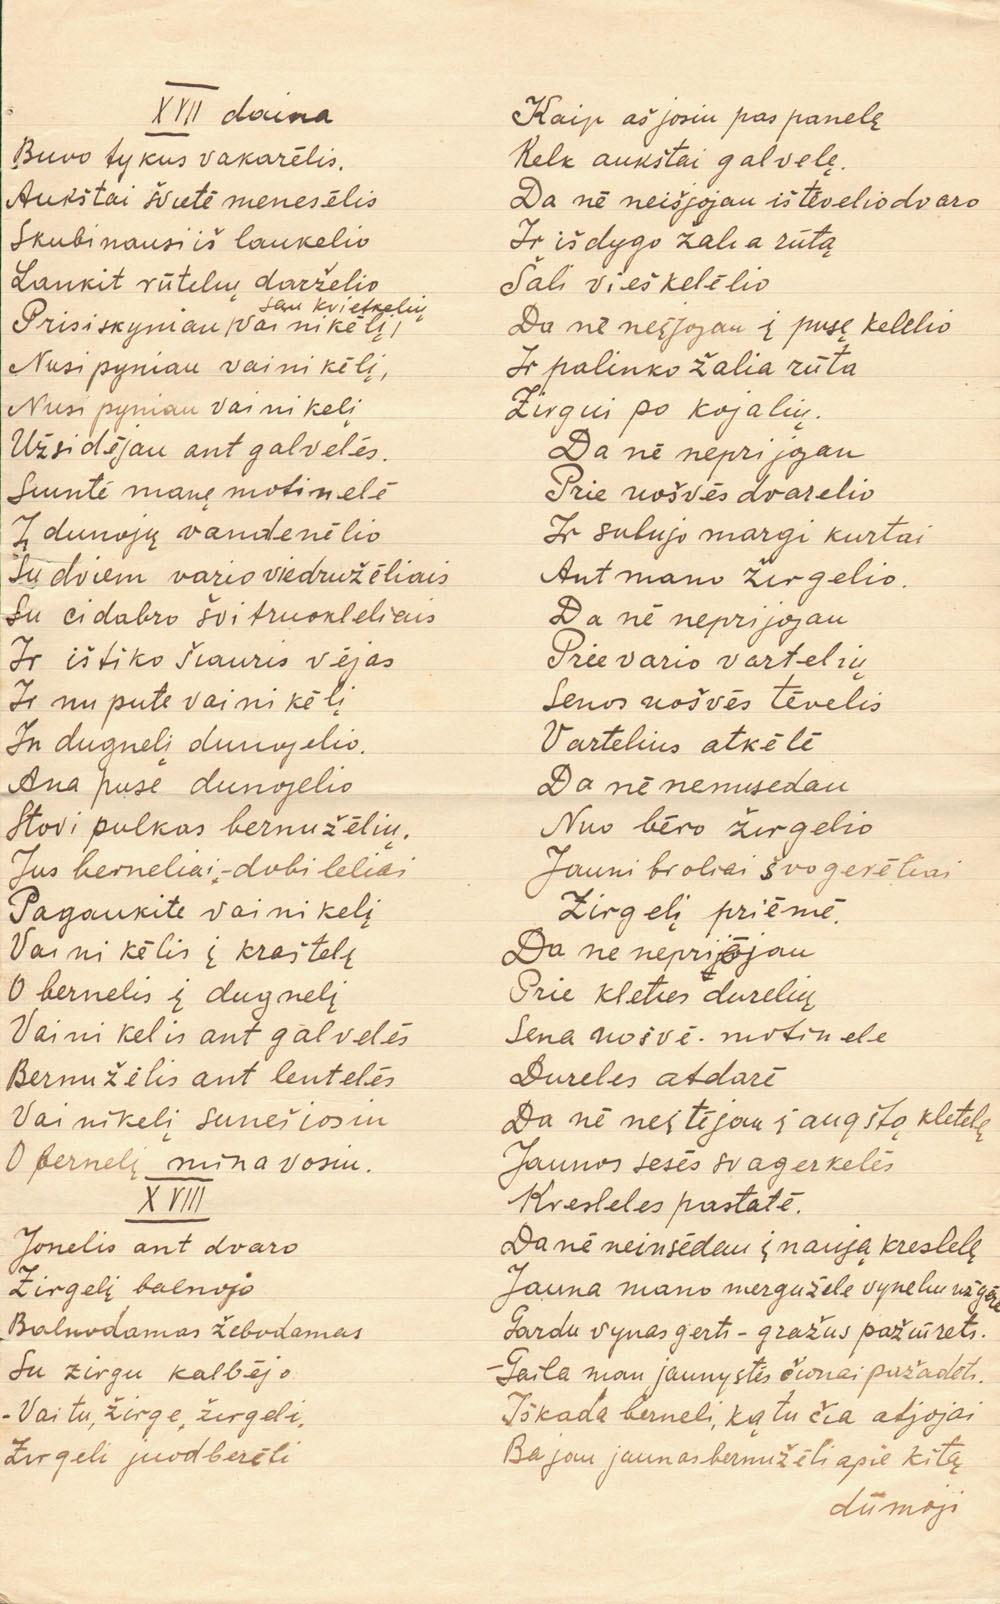 XVII daina
Buvo tykus vakarēlis.
Aukštai švietė menesēlis
Skubinausi iš laukelio
Lankit rūtelių darželio
sau kvietkelių
Prisiskyniau vainikēlį,
Nusipyniau vainikēlį,
Nusipyniau vainikelį
Užsidējau ant galvelēs.
Siuntē manę motinelē
Į dunojų vandenēlio
Su dviem vario viedružēliais
Su cidabro švitruokleliais
Ir ištiko šiauris vējas
Ir nupute vainikēlį
In dugnelį dunojelio.
Ana pusē dunojelio
Stovi pulkas bernužēlių.
Jus berneliai,-dobilēliai
Pagaukite vainikelį
Vainikēlis į kraštelę
O bernelis į dugnelį
Vainikelis ant galvelēs
Bernužēlis ant lentelēs
Vainikelį sunešiosiu
O bernelį minavosiu.
XVIII
Jonelis ant dvaro
Žirgelį balnojo
Balnodamas žebodamas
Su zirgu kalbējo
-Vai tu, žirge, žirgeli,
Žirgeli juodberēli
Kaip aš josiu pas panelę
Kelk aukštai galvelę.
Da nē neišjojau iš tēvelio dvaro
Ir išdygo žalia rūtą
Šali vieškelēlio
Da nē neįjojau į pusę kelelio
Ir palinko žalia rūta
Žirgui po kojalių.
Da nē neprijojau
Prie uošvēs dvarelio
Ir sulujo margi kurtai
Ant mano žirgelio.
Da nē neprijojau
Prie vario vartelių
Senos uošvēs tēvelis
Vartelius atkēlē
Da nē nenusedau
Nuo bēro žirgelio
Jauni broliai švogerēliai
Žirgelį priēmē.
Da ne neprijojau
Prie kleties durelių
Sena uošvē. motinele
Dureles atdarē
Da nē neįtējau į augštą kletelę
Jaunos sesēs svagerkelēs
Kresleles pastatē.
Da nē neinsēdau į naują kreslelę
Jauna mano mergužēle vyneliu užgērē
Gardu vynas gerti - gražus pažiūrēti.
-Gaila man jaunystēs čionai pažadēti.
Iškada berneli, ką tu čia atjojai
Ba jau jaunas bernužēli apie kitą
dūmoji